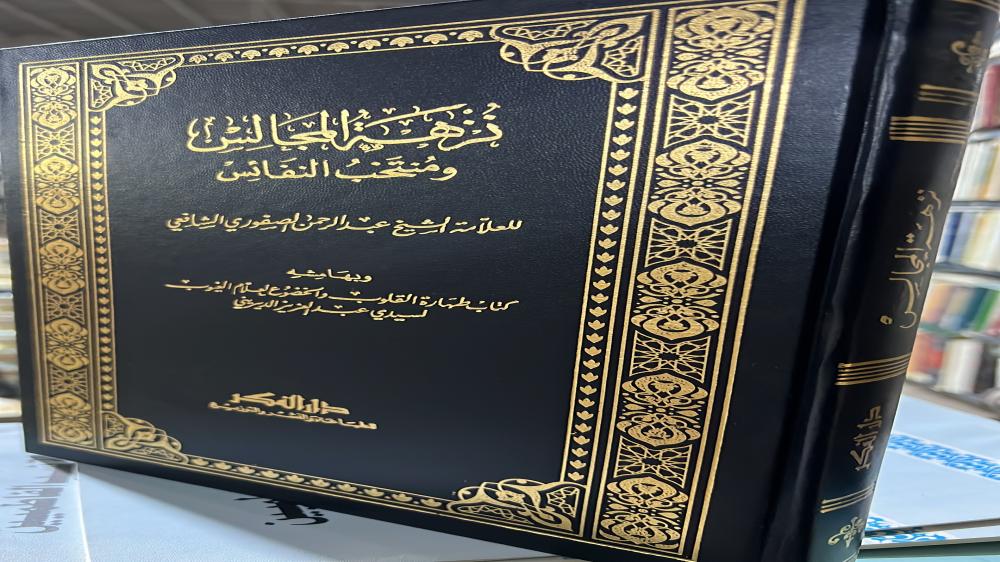 نزهة المجالس
ومنتخب النفائس
للعلامة الشيخ عبد الرحمن الصفوري الشافعي
وبهامشه
كتاب طهارة القلوب والخضوع لعلام الغيوب
لسيدي عبد العزيز الديريني
دار الفكر
للطباعة والنشر والتوزيع
نزهة المجالس
دار الفكر